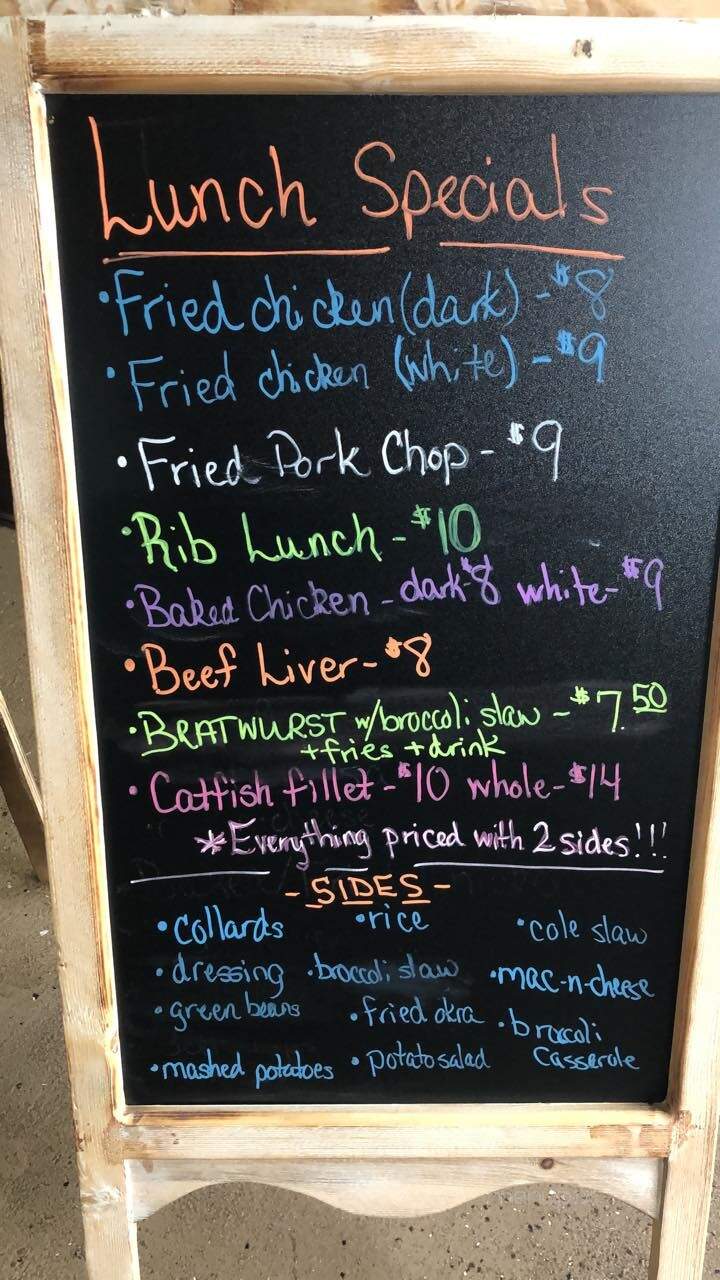 Lunch Specials
•Fried chicken (dark) - $8
•Fried chicken (white) - $9
•Fried Pork Chop - $9
•Rib Lunch - $10
•Baked Chicken - dark $8 white - $9
•Beef Liver - $8
•BRATWURST w/broccoli slaw - $7.50
+fries +drink
•Catfish fillet - $10 whole - $14
*Everything priced with 2 sides!!!
- SIDES -
•collards •rice •cole slaw
•dressing •broccoli slaw •mac-n-cheese
•green beans •fried okra •broccoli
casserole
•mashed potatoes •potato salad